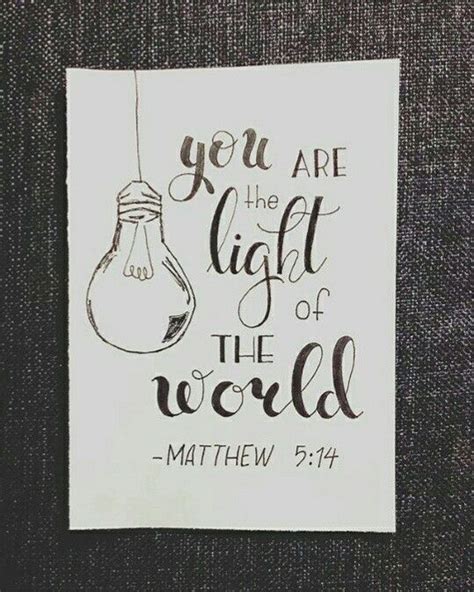 you ARE
the
light
of
THE
world
-MATTHEW 5:14